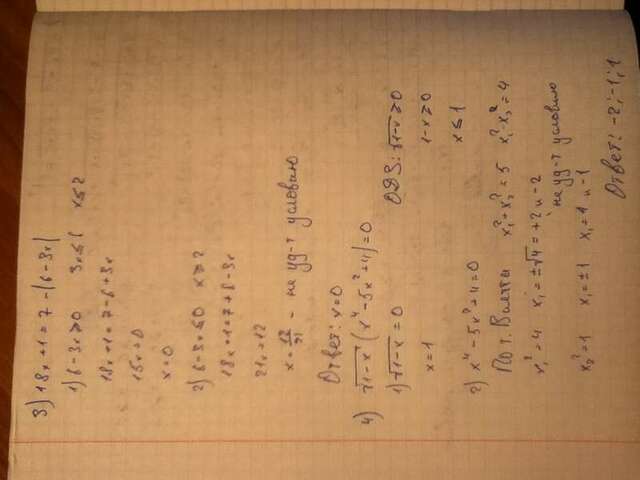 3) 18x+1=7-|6-3x|
1) 6-3x≥0 3x≤6 x≤2
18x+1=7-6+3x
15x=0
x=0
2) 6-3x≤0 x≥2
18x+1=7+6-3x
21x=12
x=12/21 - не уд-т условию
Ответ: x=0
4) √1-x (x⁴-5x²+4)=0
1) √1-x=0 ОДЗ: √1-x≥0
x=1 1-x≥0
x≤1
2) x⁴-5x²+4=0
По т. Виета x₁²+x₂²=5 x₁²·x₂²=4
x₁²=4 x₁=±√4=+2 и -2
не уд-т условию
x₂²=1 x₁=±1 x₁=1 и -1
Ответ: -2; -1; 1